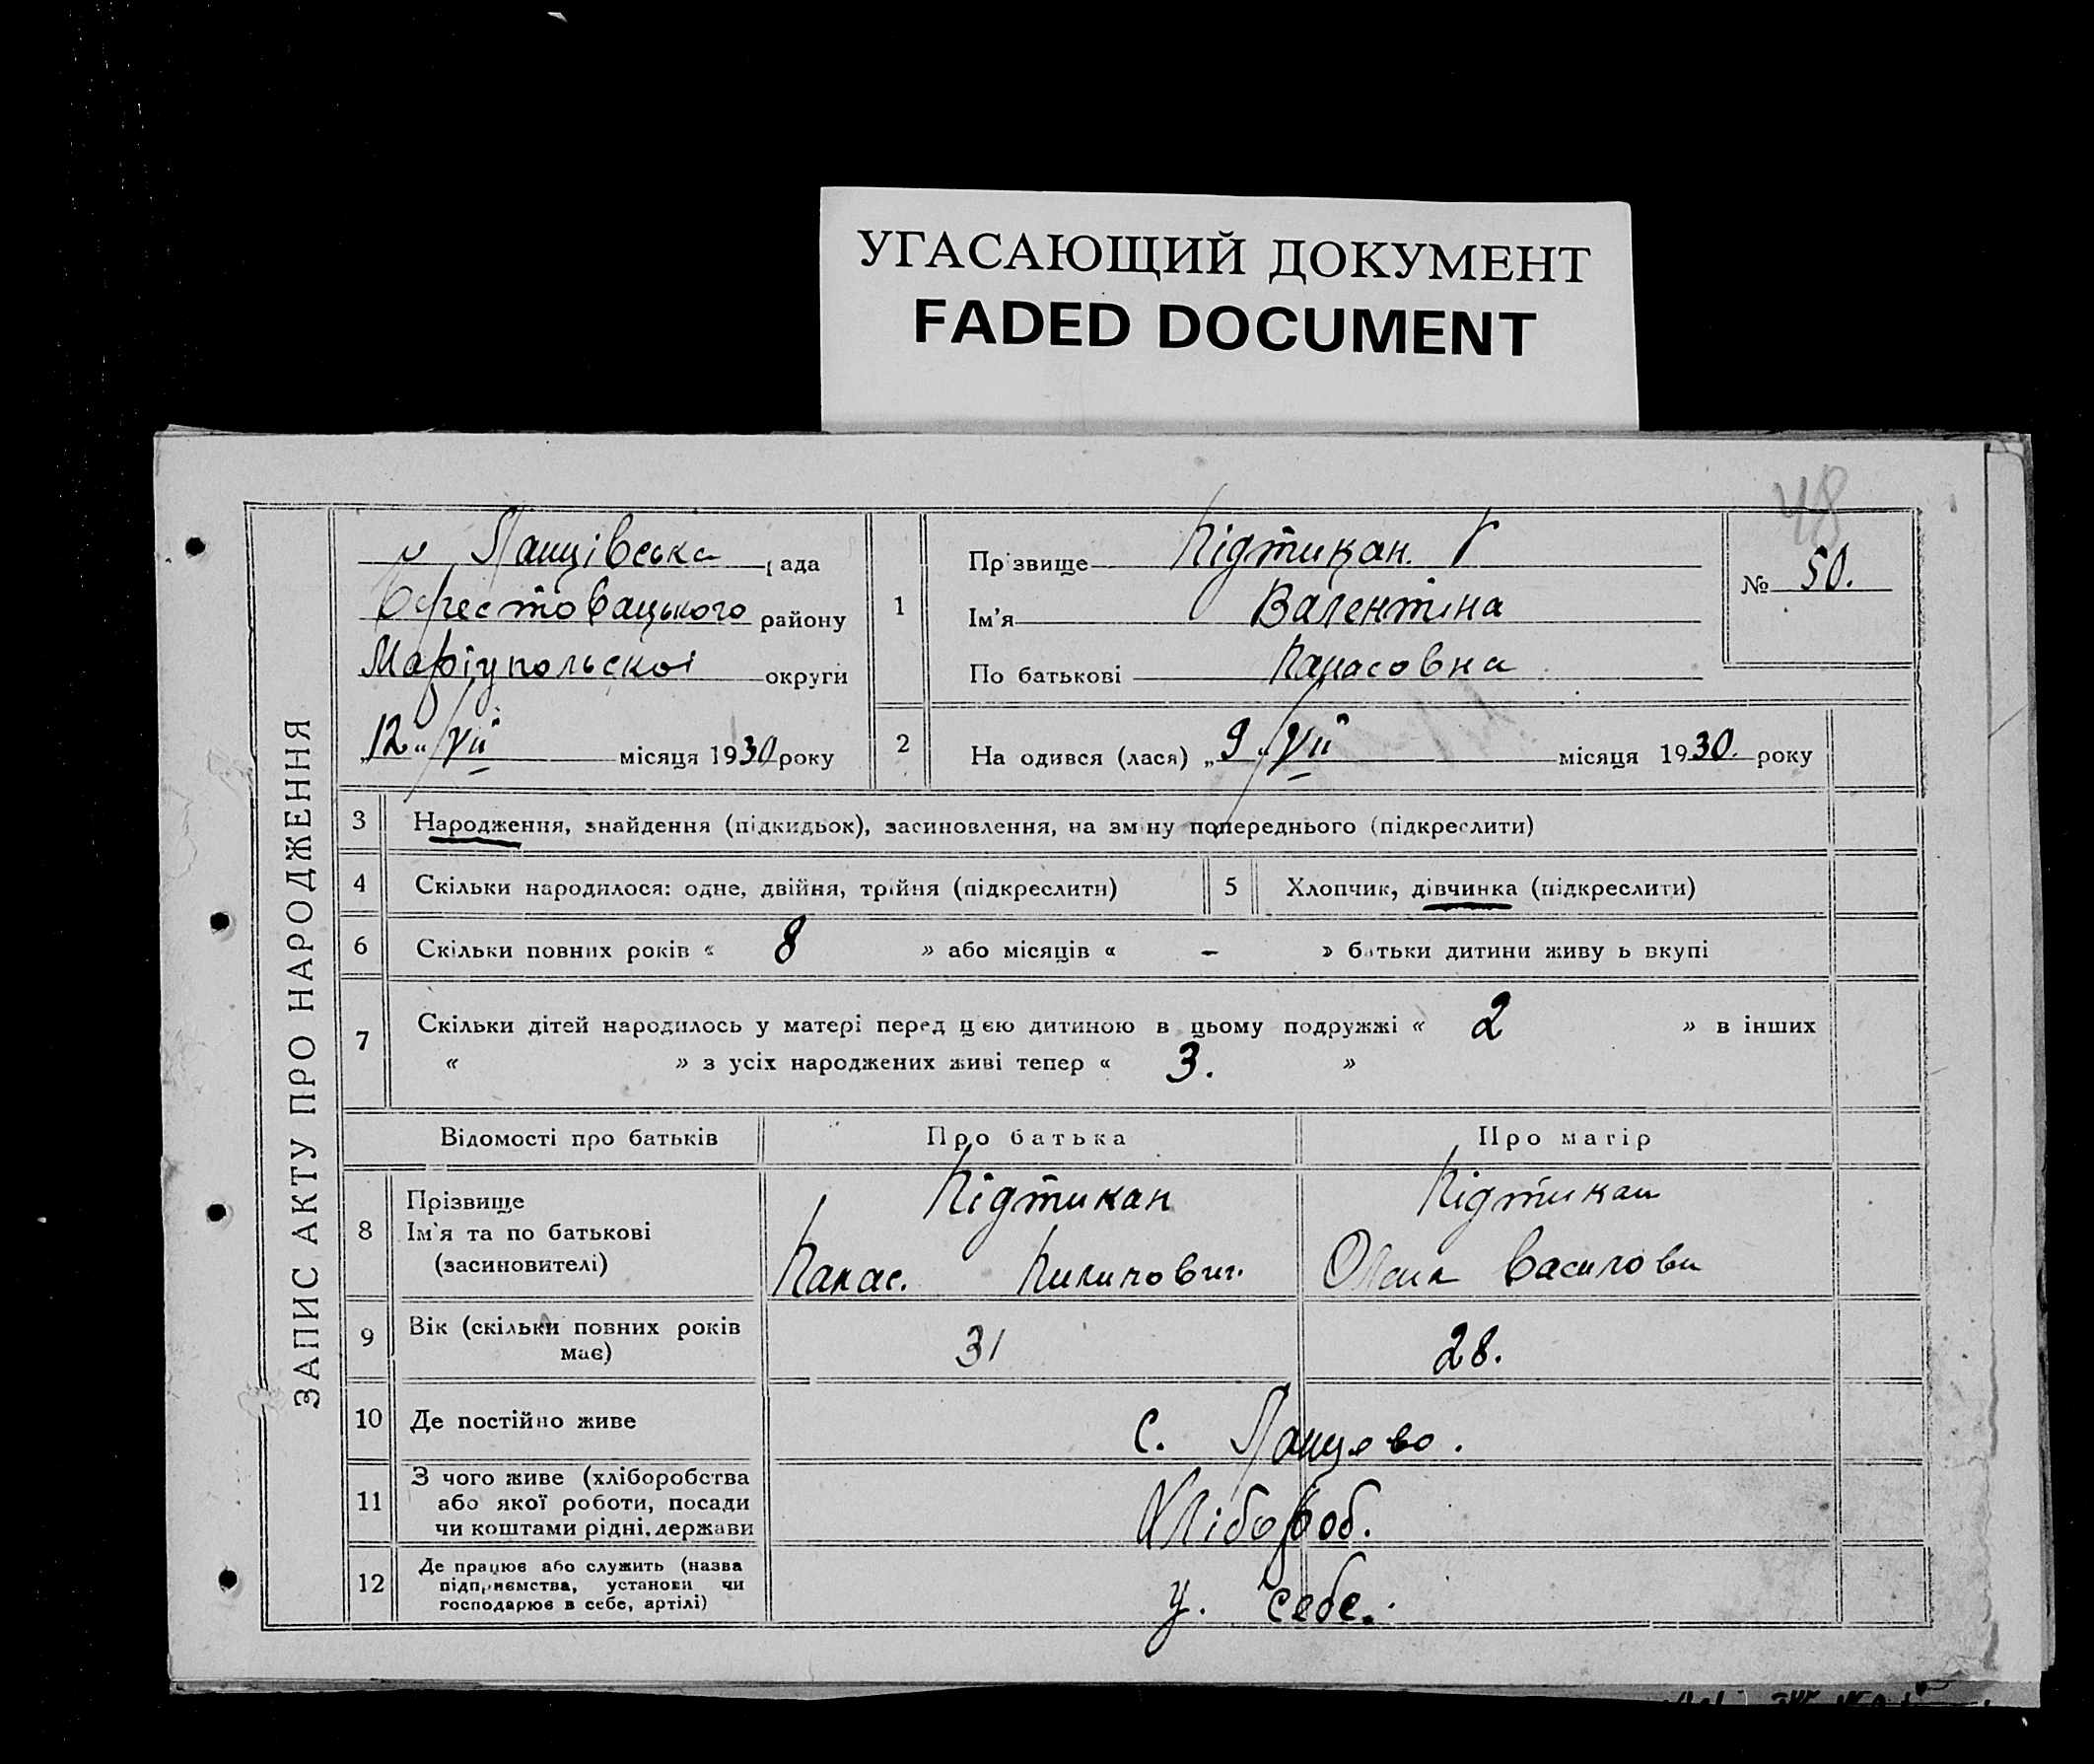 УГАСАЮЩИЙ ДОКУМЕНТ
FADED DOCUMENT
48
рада
района Берестовацького району
Маріупольскоі округи
„12“ VII місяця 1930 року
1
Прізвище Підтикан.
Ім'я Валентіна
По батькові Панасовна
№ 50.
2
На одився (лася) „9“ VII місяця 1930. року
ЗАПИС АКТУ ПРО НАРОДЖЕННЯ
3 Народження, знайдення (підкидьок), засиновлення, на зміну попереднього (підкреслити)
4 Скільки народилося: одне, двійня, трійня (підкреслити)
5 Хлопчик, дівчинка (підкреслити)
6 Скільки повних років « 8 » або місяців « - » батьки дитини живу ь вкупі
7 Скільки дітей народилось у матері перед цією дитиною в цьому подружжі « 2 » в інших
« » з усіх народжених живі тепер « 3. »
Відомості про батьків
Про батька
Про матір
8
Прізвище
Ім'я та по батькові
(засиновителі)
Підтикан
Панас.
Підтикан
Василовн
9
Вік (скільки повних років
має)
31
28.
10 Де постійно живе
с.
11
З чого живе (хліборобства
або якої роботи, посади
чи коштами рідні, держави
Хлібороб.
12
Де працює або служить (назва
підприємства, установи чи
господарює в себе, артілі)
у. себе.